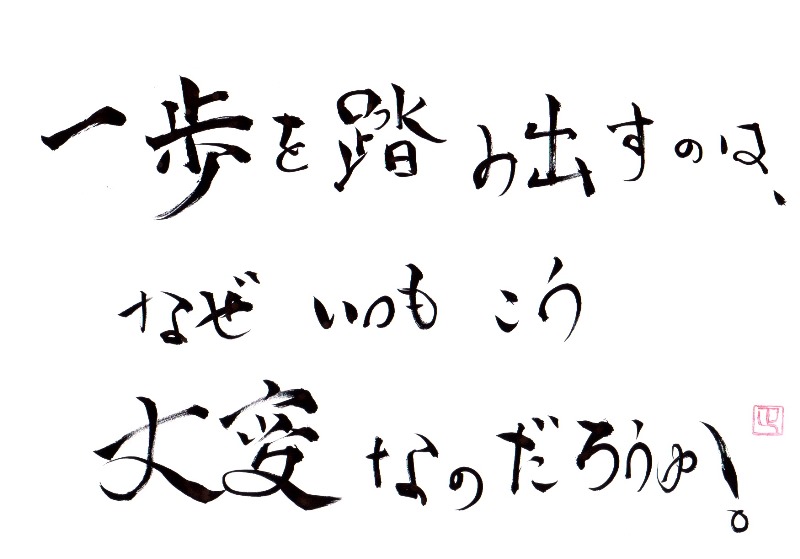 一歩を踏み出すのは、
なぜいつもこう
大変なのだろうか。